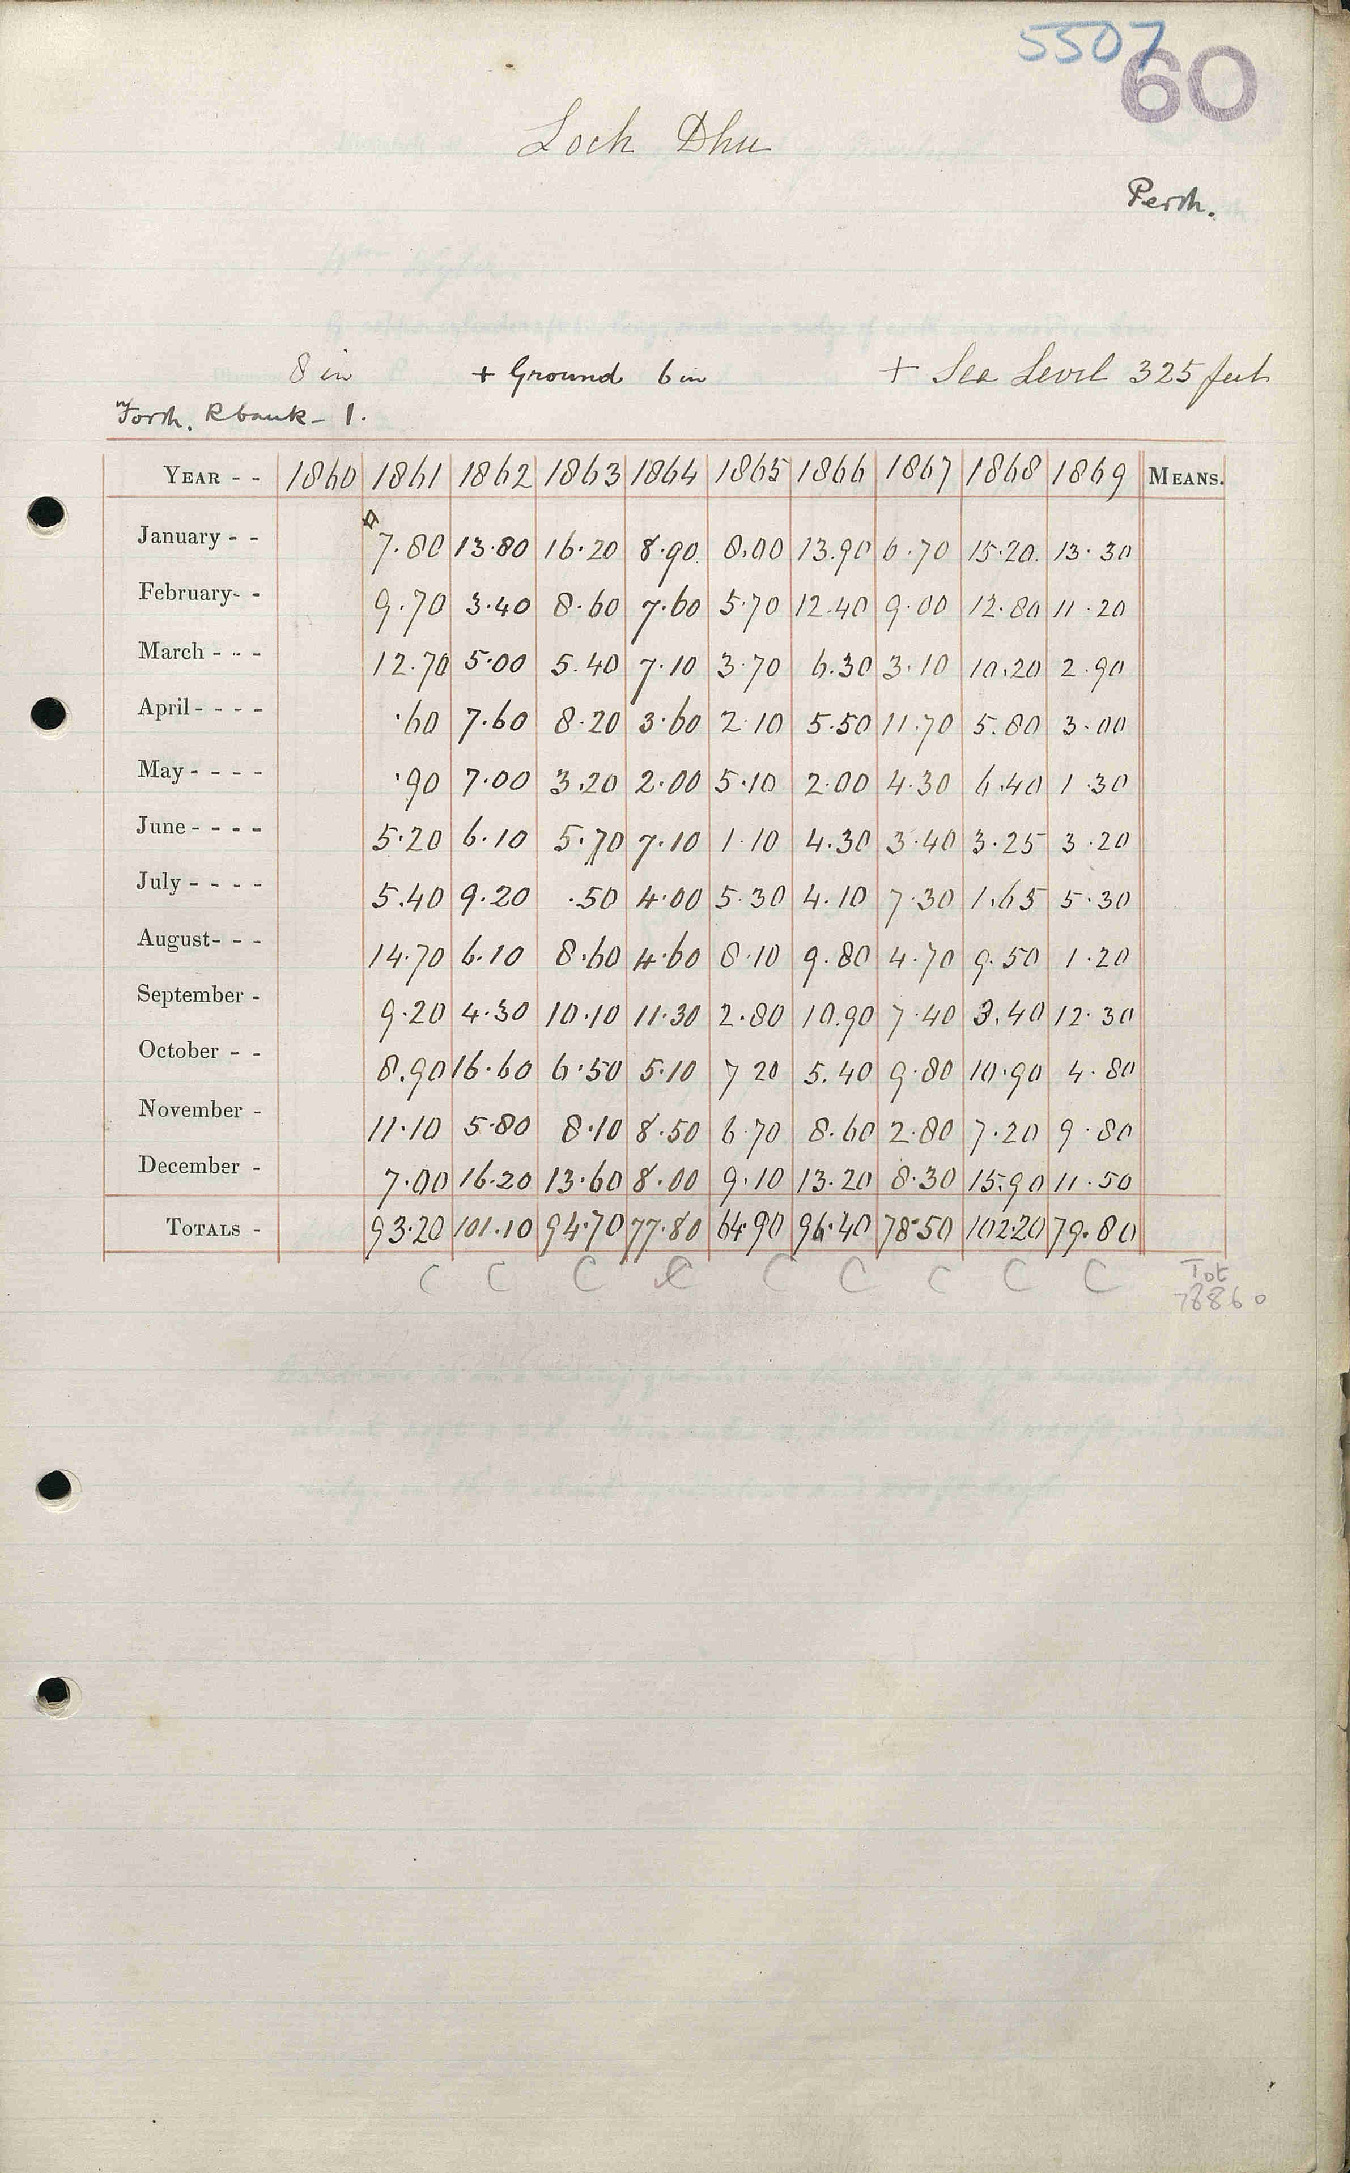 5507
60
Loch Dhu
Perth.
8 in + Ground 6 in + Sea Level 325 feet
Forth. R bank - 1.
YEAR - - 1860 1861 1862 1863 1864 1865 1866 1867 1868 1869 MEANS.
January - - 7.80 13.80 16.20 8.90 8.00 13.90 6.70 15.20 13.30
February- - 9.70 3.40 8.60 7.60 5.70 12.40 9.00 12.80 11.20
March - - - 12.70 5.00 5.40 7.10 3.70 6.30 3.10 10.20 2.90
April - - - - .60 7.60 8.20 3.60 2.10 5.50 11.70 5.80 3.00
May - - - - .90 7.00 3.20 2.00 5.10 2.00 4.30 6.40 1.30
June - - - - 5.20 6.10 5.70 7.10 1.10 4.30 3.40 3.25 3.20
July - - - - 5.40 9.20 .50 4.00 5.30 4.10 7.30 1.65 5.30
August- - - 14.70 6.10 8.60 4.60 8.10 9.80 4.70 9.50 1.20
September - 9.20 4.30 10.10 11.30 2.80 10.90 7.40 3.40 12.30
October - - 8.90 16.60 6.50 5.10 7 20 5.40 9.80 10.90 4.80
November - 11.10 5.80 8.10 8.50 6.70 8.60 2.80 7.20 9.80
December - 7.00 16.20 13.60 8.00 9.10 13.20 8.30 15.90 11.50
TOTALS - 93.20 101.10 94.70 77.80 64.90 96.40 78.50 102.20 79.80
C C C C C C C C C Tot
78860